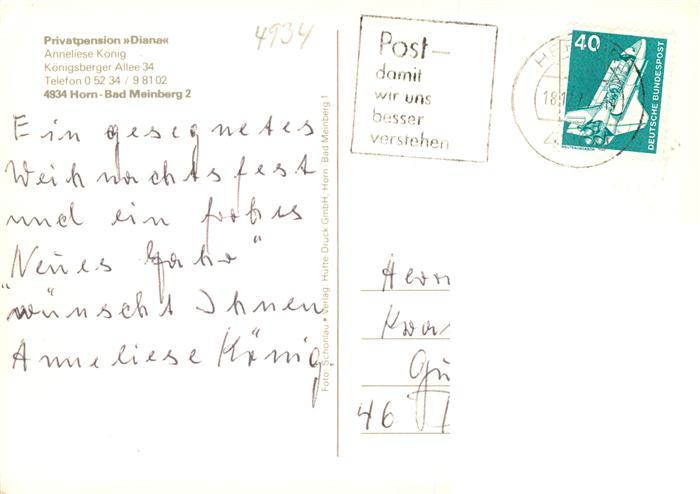 Privatpension »Diana«
Anneliese König
Königsberger Allee 34
Telefon 0 52 34 / 9 81 02
4934 Horn-Bad Meinberg 2
4934
Ein gesegnetes
Weihnachtsfest
und ein frohes
"Neues Jahr"
wünscht Ihnen
Anneliese König.
Foto: Schönlau • Verlag: Hütte-Druck GmbH, Horn-Bad Meinberg 1
Post-
damit
wir uns
besser
verstehen
40
DEUTSCHE BUNDESPOST
Herrn
46